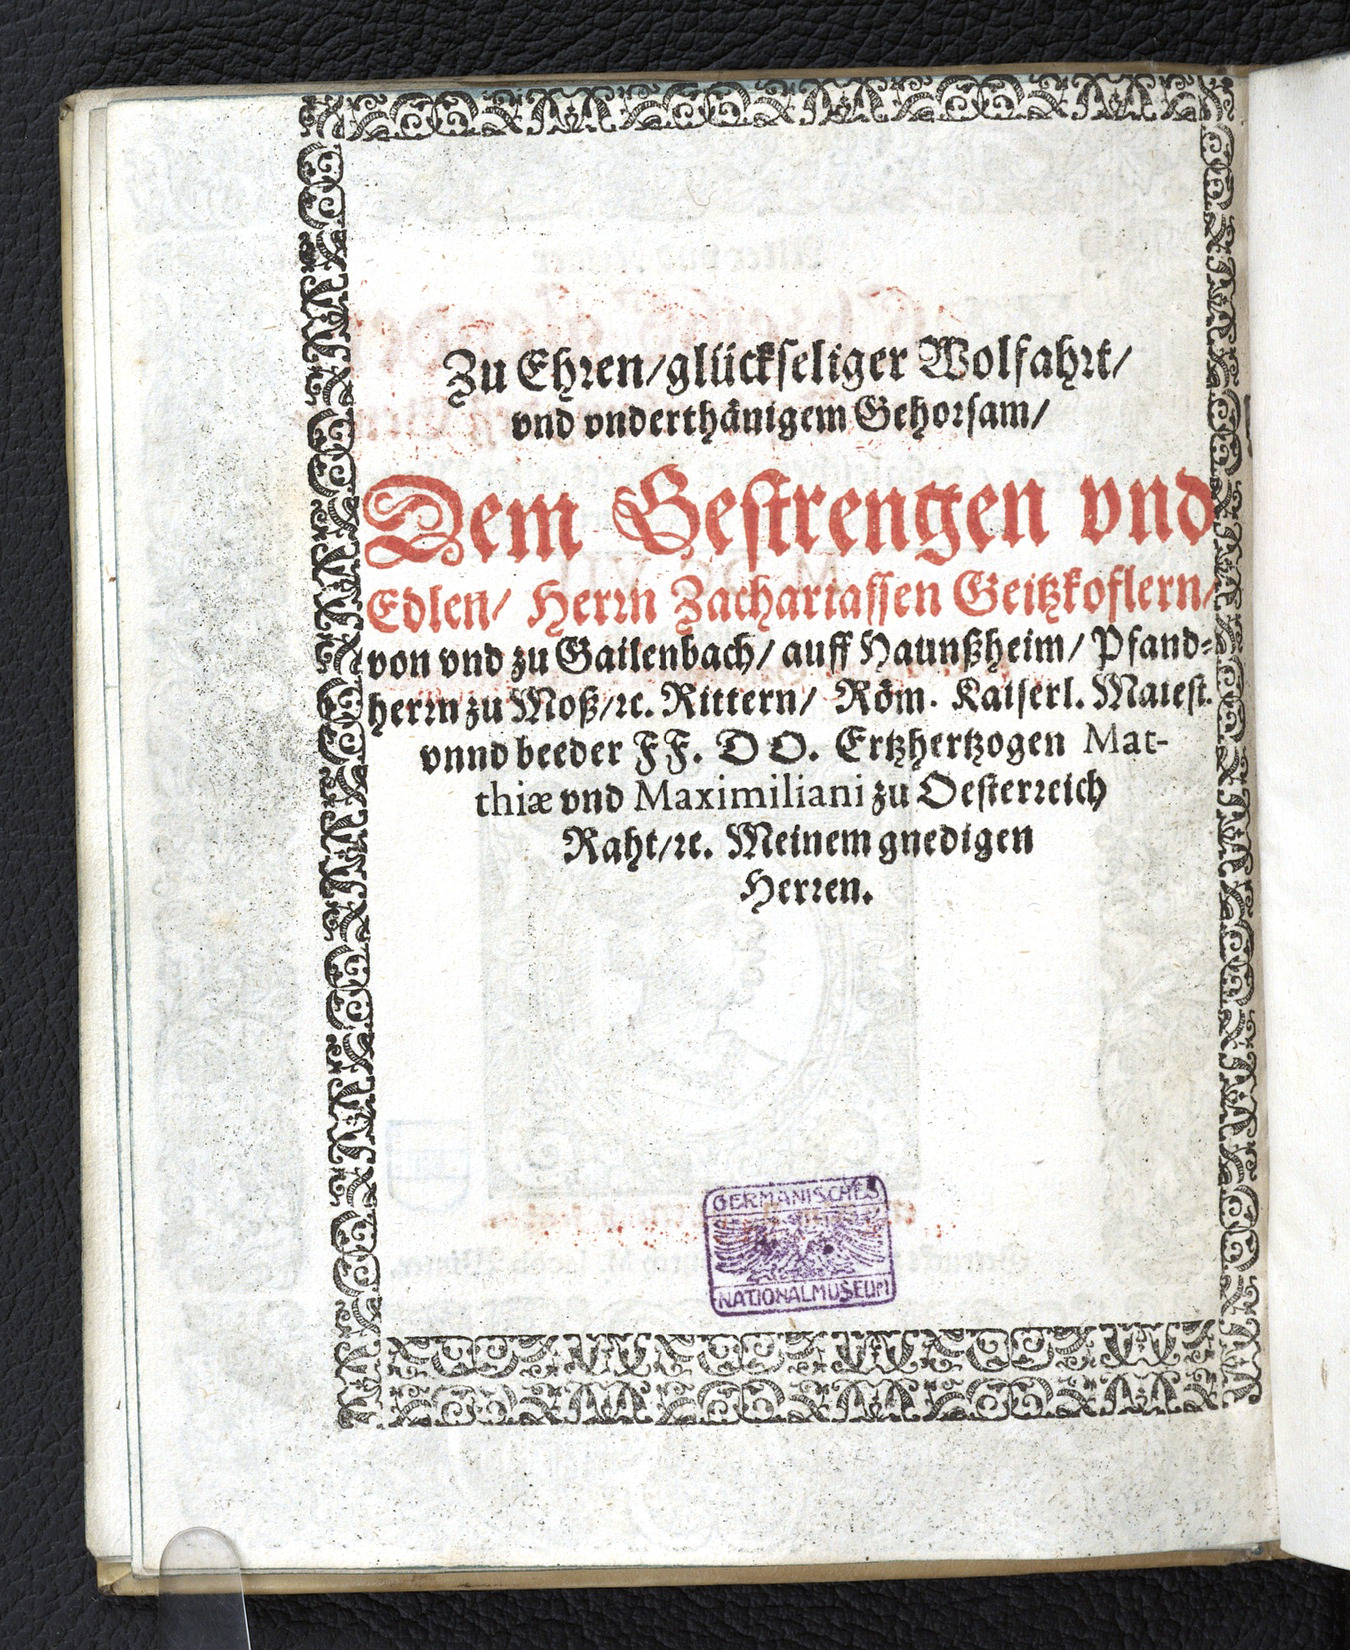 Zu Ehren/glückseliger Wolfahrt/
vnd vnderthänigem Gehorsam/
Dem Gestrengen vnd
Edlen/ Herrn Zachariassen Geitzkoflern/
von vnd zu Gailenbach/ auff Haunßheim/ Pfand-
herrn zu Moß/ꝛc. Rittern/ Röm. Kaiserl. Maiest.
vnnd beeder FF. DO. Ertzhertzogen Mat-
thiæ vnd Maximiliani zu Oesterreich
Raht/ꝛc. Meinem gnedigen
Herren.
GERMANISCHES
NATIONALMUSEUM